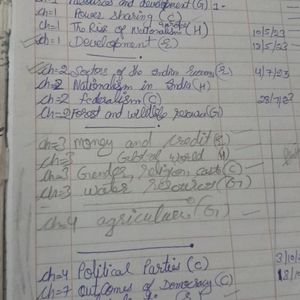 ch=1 Resources and development (G) 1-
ch=1 Power sharing (C)
ch=1 The Rise of Nationalism (H) Europe 10/5/23
ch=1 Development (E) 12/5/23
ch=2 Sectors of the Indian Economy (E) 4/7/23
ch=2 Nationalism in India (H)
ch=2 Federalism (C) 28/7/23
ch=2 Forest and wildlife resources (G)
ch=3 money and credit (E)
ch=3 of world (H)
ch=3 Gender, religion, caste (C)
ch=3 water resources (G)
ch=4 agriculture (G)
ch=4 Political Parties (C) 3/10/
ch=7 Outcomes of Democracy (C)